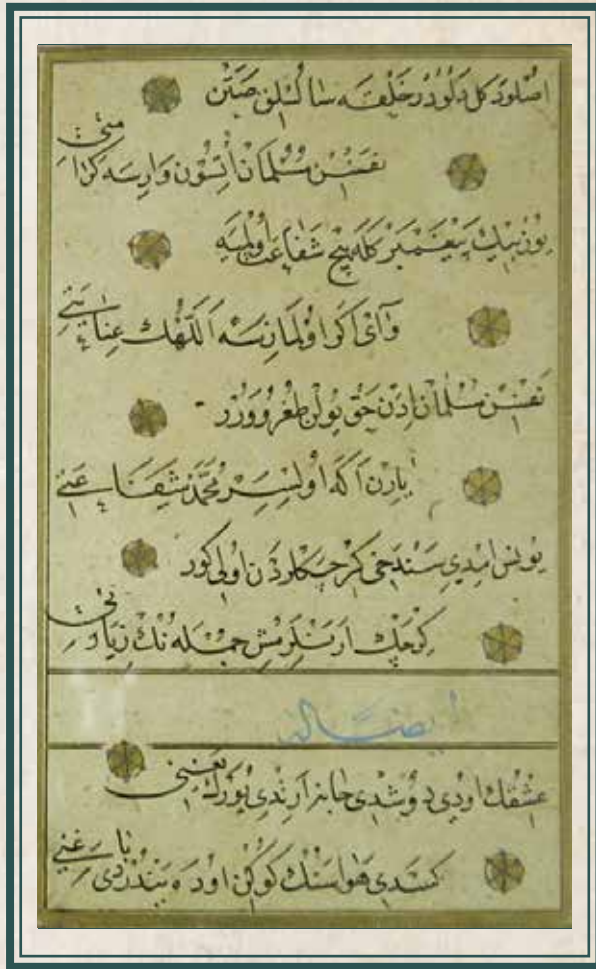 اصلو دكل دلودر خلقه سالسلق صتن
نفسن مسلمان اتسون وارسه كرامتى
يوز بيك پيغمبر كله هيچ شفاعت اولميه
واى اكر اولمازسه اللهك عنايتى
نفسن مسلمان ادن حق يولن طغرو وررر
يارن اكه اوليسر محمد شفاعتى
يونس امدى سندخى كرچكلردن اولى كور
كرچك ارنلرمش جمله نك زياوتى
ايضا له
عشقك اودى دوشدى جانه ارتدى يورك ياغنى
كسدى هواسنك كوكن اوده يندردى باغنى